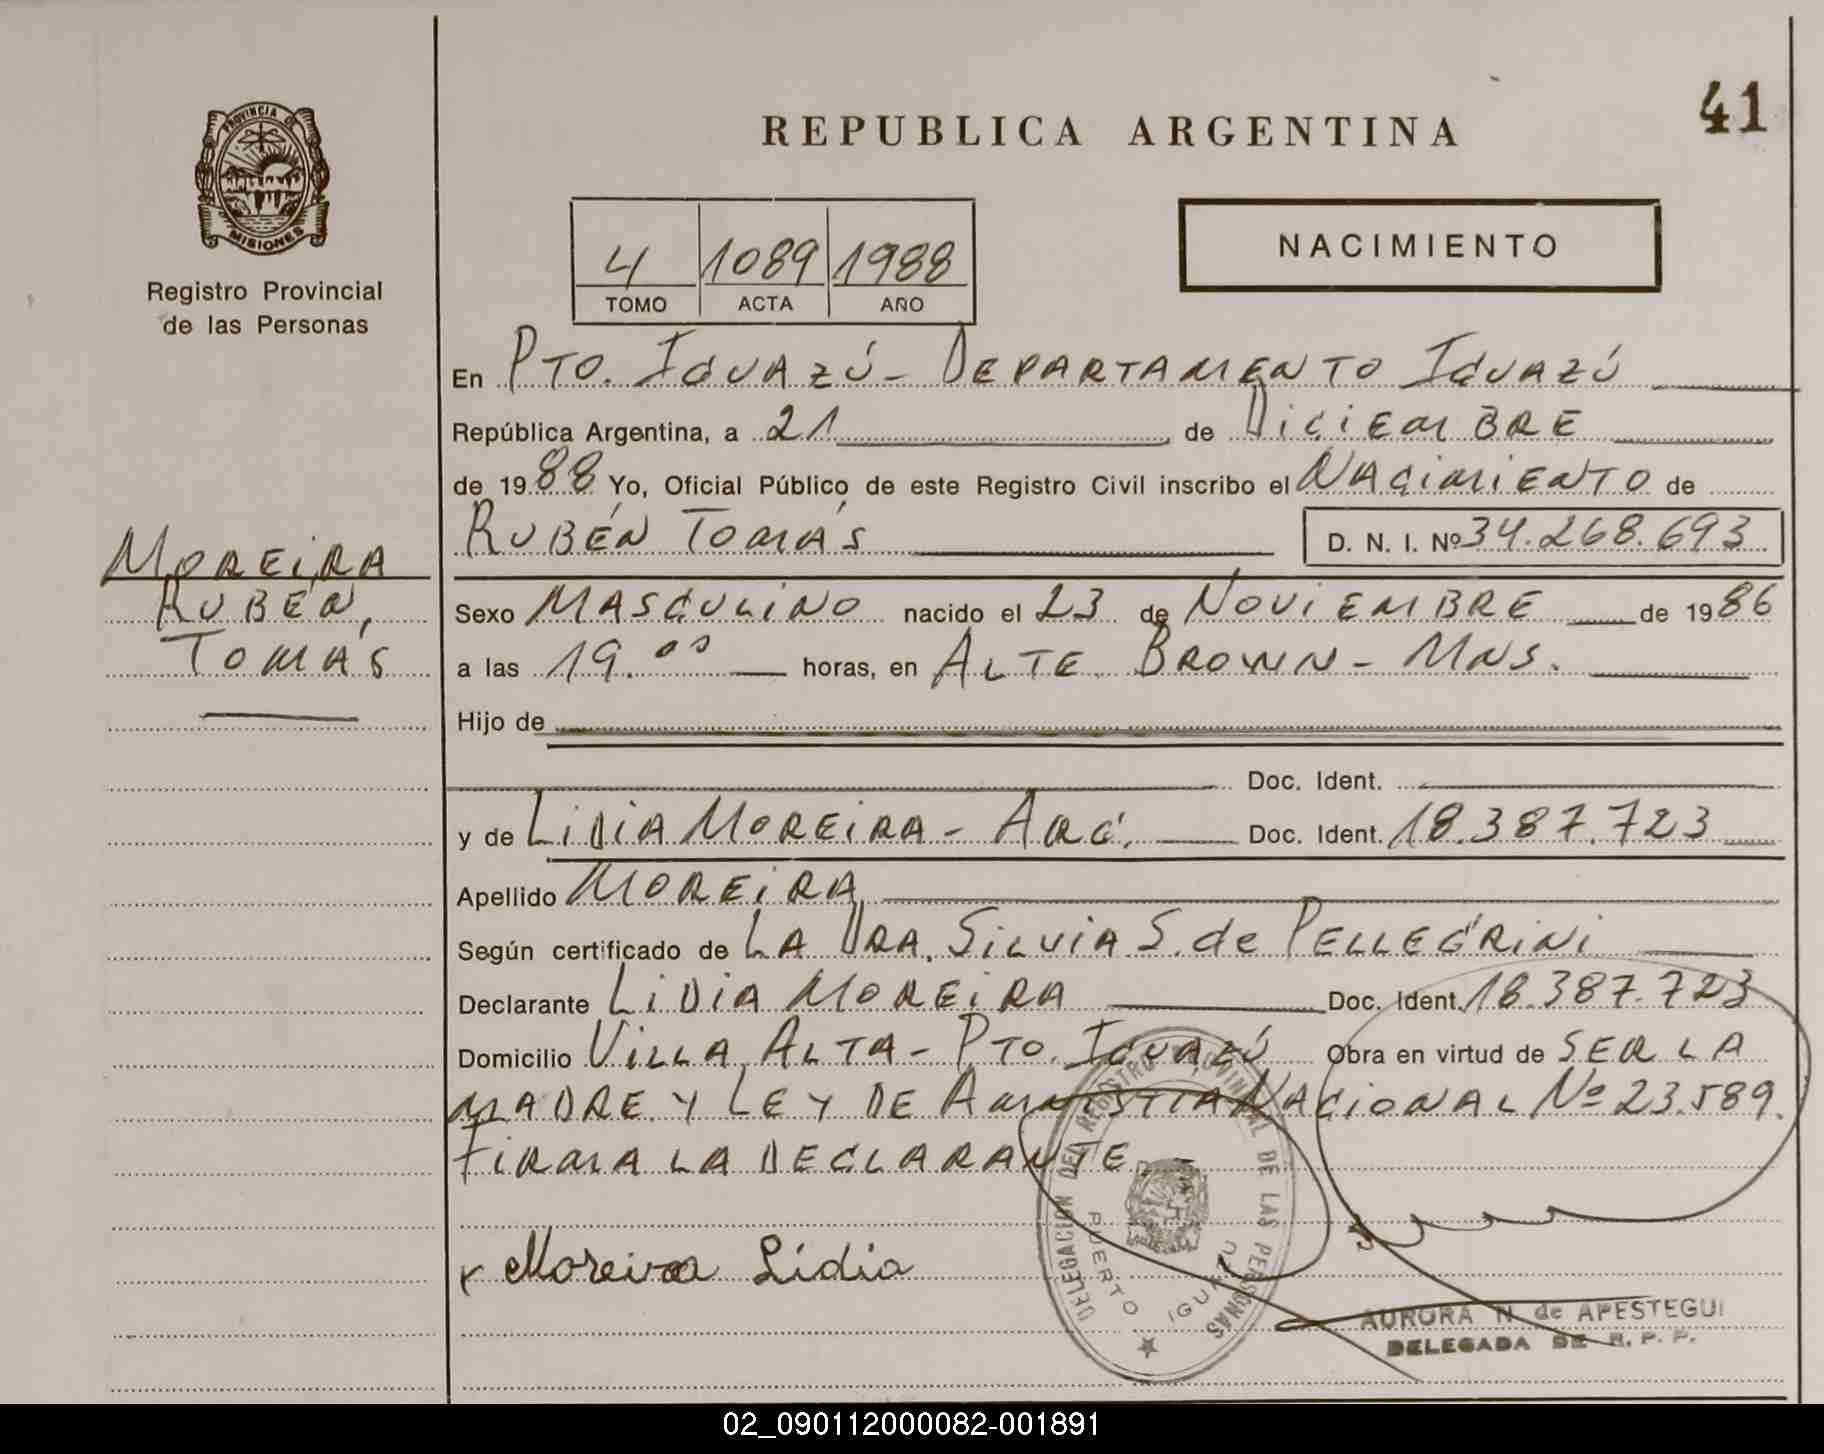 41
REPUBLICA ARGENTINA
PROVINCIA DE
MISIONES
Registro Provincial
de las Personas
4 1089 1988
TOMO ACTA AÑO
NACIMIENTO
En PTO. IGUAZÚ - DEPARTAMENTO IGUAZÚ
República Argentina, a 21 de DICIEMBRE
de 1988 Yo, Oficial Público de este Registro Civil inscribo el NACIMIENTO de
RUBÉN TOMÁS D. N. I. Nº 34.268.693
MOREIRA
RUBÉN,
TOMÁS
Sexo MASCULINO nacido el 23 de NOVIEMBRE de 1986
a las 19.00 horas, en ALTE BROWN - MNS.
Hijo de
Doc. Ident.
y de LIDIA MOREIRA - ARG. Doc. Ident. 18.387.723
Apellido MOREIRA
Según certificado de LA DRA. SILVIA S. de PELLEGRINI
Declarante LIDIA MOREIRA Doc. Ident. 18.387.723
Domicilio VILLA ALTA - PTO. IGUAZÚ Obra en virtud de SER LA
MADRE Y LEY DE AMNISTIA NACIONAL Nº 23.589.
FIRMA LA DECLARANTE.
x Moreira Lidia
DELEGACION DEL REGISTRO PROVINCIAL DE LAS PERSONAS
PUERTO IGUAZU
AURORA N. de APESTEGUI
DELEGADA DE R. P. P.
02_090112000082-001891